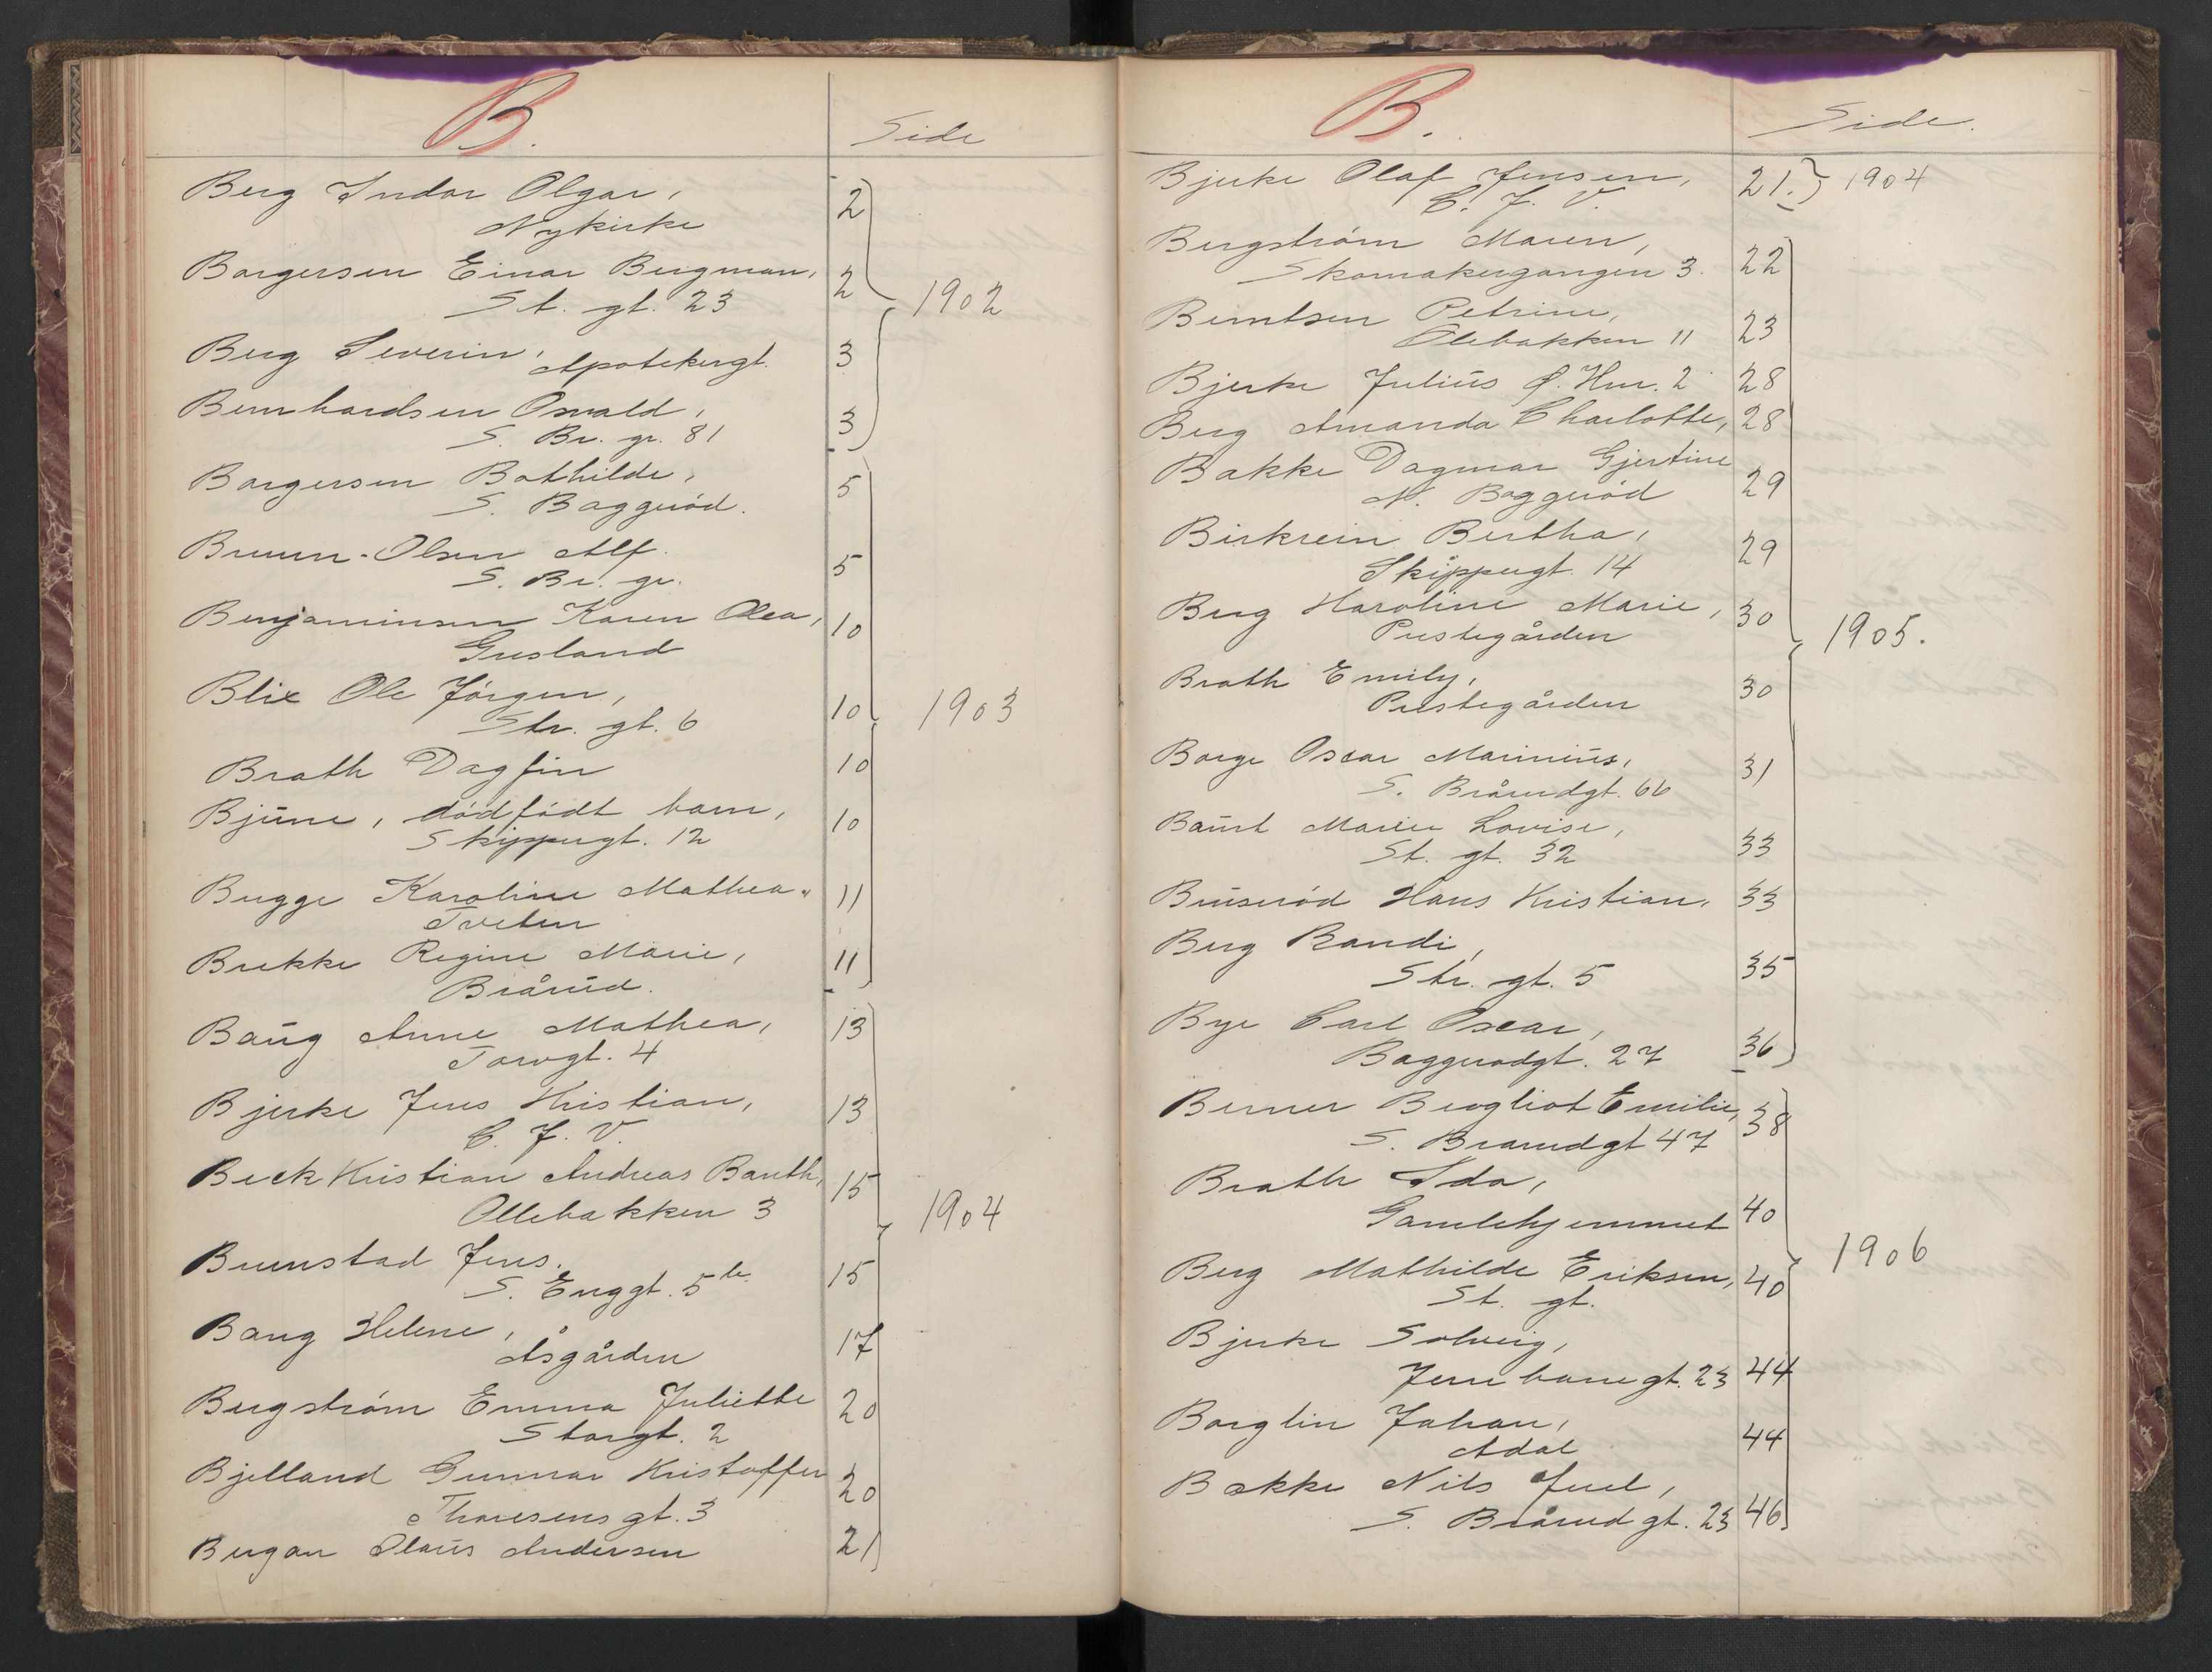 B.
Side
Berg Indar Olgar,
Nykirke
2
Borgersen Einar Bergman,
St. gt. 23
2
1902
Berg Severin,
Apotekergt.
3
Bernhardsen Osvald,
S. Br. gr. 81
3
Borgersen Bothilde,
S. Baggerød.
5
Bruun-Olsen Alf.
S. Br. gr.
5
Benjaminsen Karen Olea,
Gresland
10
Blix Ole Jörgen,
Str. gt. 6
10
1903
Brath Dagfin
10
Bjune, dødfødt barn,
Skippergt. 12
10
Bugge Karoline Mathea.
Tveten
11
Brekke Regine Marie,
Brårud.
11
Baug Anne Mathea,
Torvgt. 4
13
Bjerke Jens Kristian,
C. J. V.
13
Beck Kristian Andreas Barth,
Ollebakken 3
15
1904
Buenstad Jens.
S. Enggt. 5b
15
Bang Helene,
Åsgården
17
Bergström Emma Juliette
Storgt. 2
20
Bjelland Gunnar Kristoffer
Thoresens gt. 3
20
Bergan Olaus Andersen
21
B.
Side.
Bjerke Olaf Jensen,
C. J. V.
21. 1904
Bergström Maren,
Skomakergangen 3.
22
Berntsen Petrine,
Olebakken 11
23
Bjerke Julius Ö. Hvr. 2
28
Berg Amanda Charlotte,
28
Bakke Dagmar Gjertine
N. Baggerød
29
Birkrein Bertha,
Skippergt. 14
29
Berg Karoline Marie,
Prestegården
30
1905.
Brath Emily,
Prestegården
30
Borge Oscar Marinius,
S. Brårudgt. 66
31
Baust Marie Lovise,
St. gt. 32
33
Bruserød Hans Kristian,
33
Berg Randi,
Str. gt. 5
35
Bye Carl Oscar,
Baggerødgt. 27
36
Berner Bergliot Emilie,
S. Brarudgt 47
38
Brath Ida,
Gamlehjemmet
40
1906
Berg Mathilde Eriksen,
St. gt.
40
Bjerke Solveig,
Jernbanegt. 23
44
Borglin Johan,
Adal
44
Bakke Nils Juel,
S. Brårud gt. 23
46